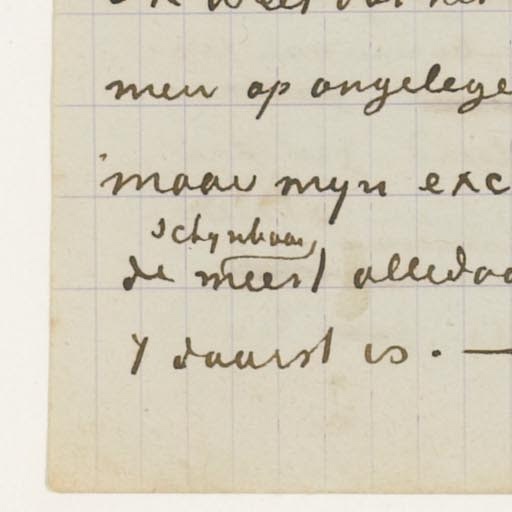 men op ongelege
maar myn exc
schynbaar
de meest alledaa
y daarst is. —